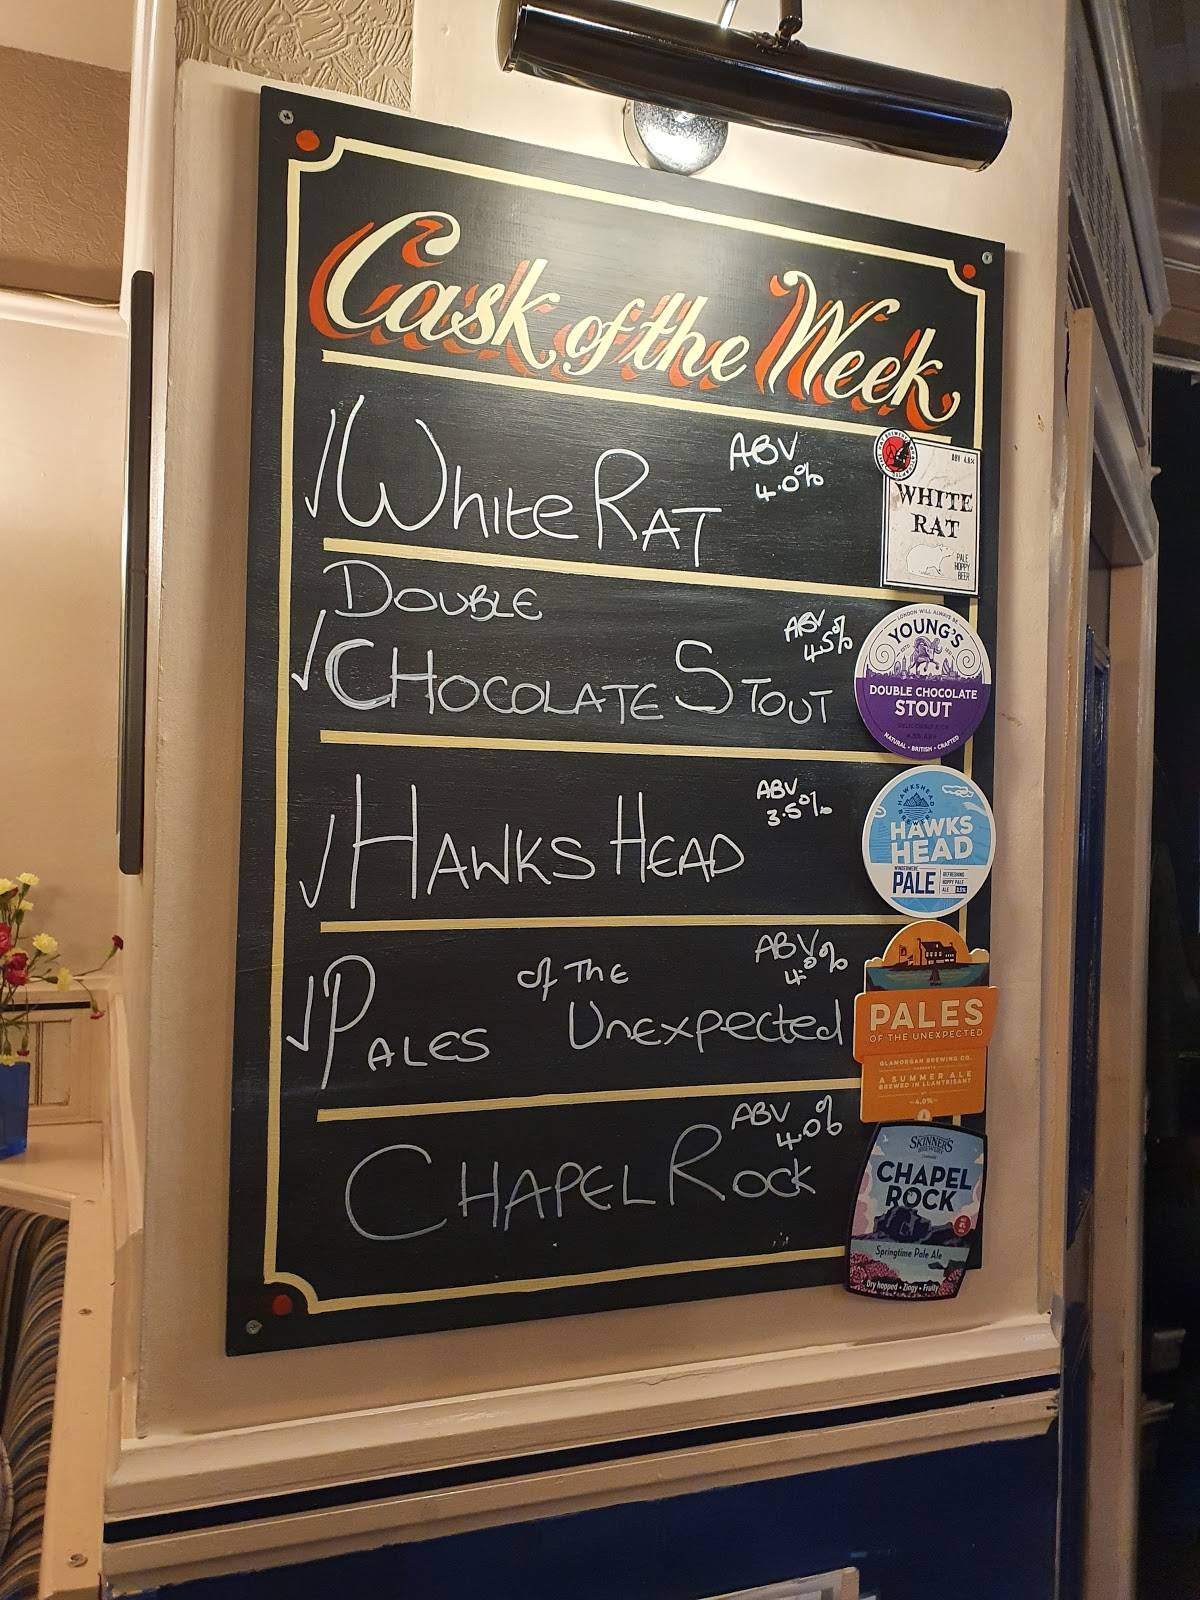 Cask of the Week
White Rat
ABV
4.0%
WHITE
RAT
PALE
HOPPY
BEER
Double
Chocolate Stout
ABV
4.5%
LONDON WILL ALWAYS BE
YOUNG'S
DOUBLE CHOCOLATE
STOUT
NATURAL • BRITISH • CRAFTED
Hawks Head
ABV
3.5%
HAWKSHEAD
BREWERY
HAWKS
HEAD
WINDERMERE
PALE
REFRESHING
HOPPY PALE
ALE 3.5%
Pales of the
Unexpected
ABV
PALES
OF THE UNEXPECTED
GLAMORGAN BREWING CO.
A SUMMER ALE
BREWED IN LLANTRISANT
4.0%
Chapel Rock
ABV
4.0%
SKINNER'S
BREWERY
CHAPEL
ROCK
Springtime Pale Ale
Dry hopped • Zingy • Fruity